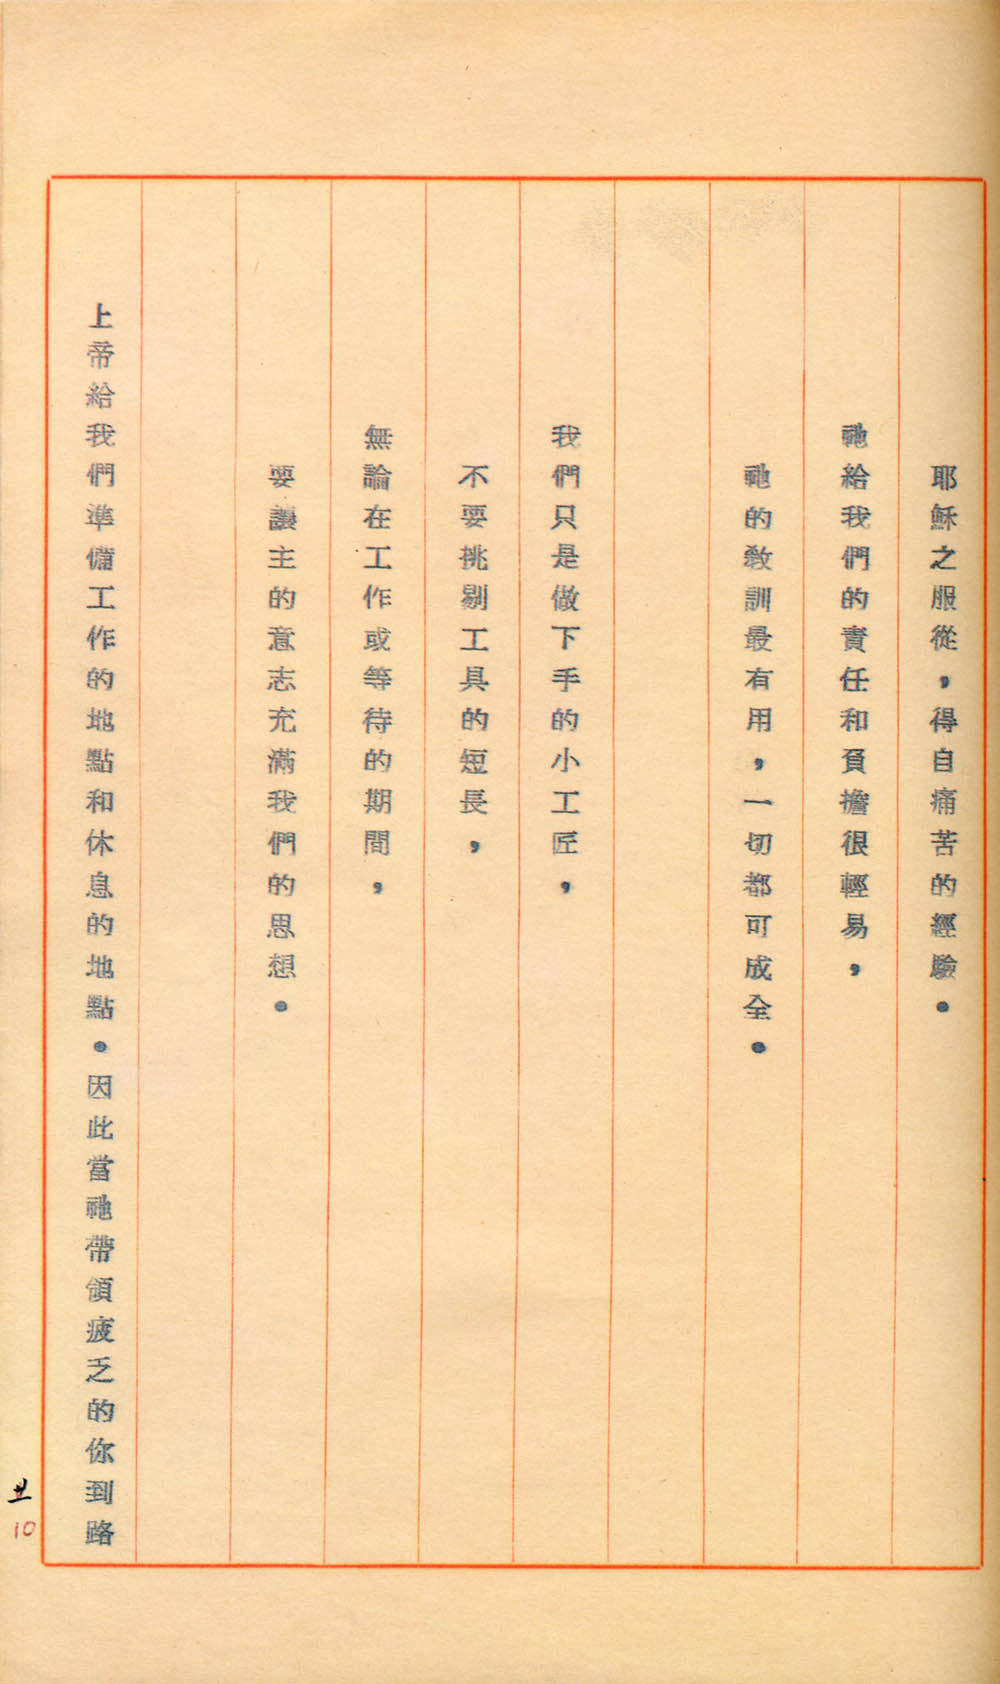 耶穌之服從，得自痛苦的經驗。
祂給我們的責任和負擔很輕易，
祂的教訓最有用，一切都可成全。
我們只是做下手的小工匠，
不要挑剔工具的短長，
無論在工作或等待的期間，
要讓主的意志充滿我們的思想。
上帝給我們準備工作的地點和休息的地點。因此當祂帶領疲乏的你到路
10